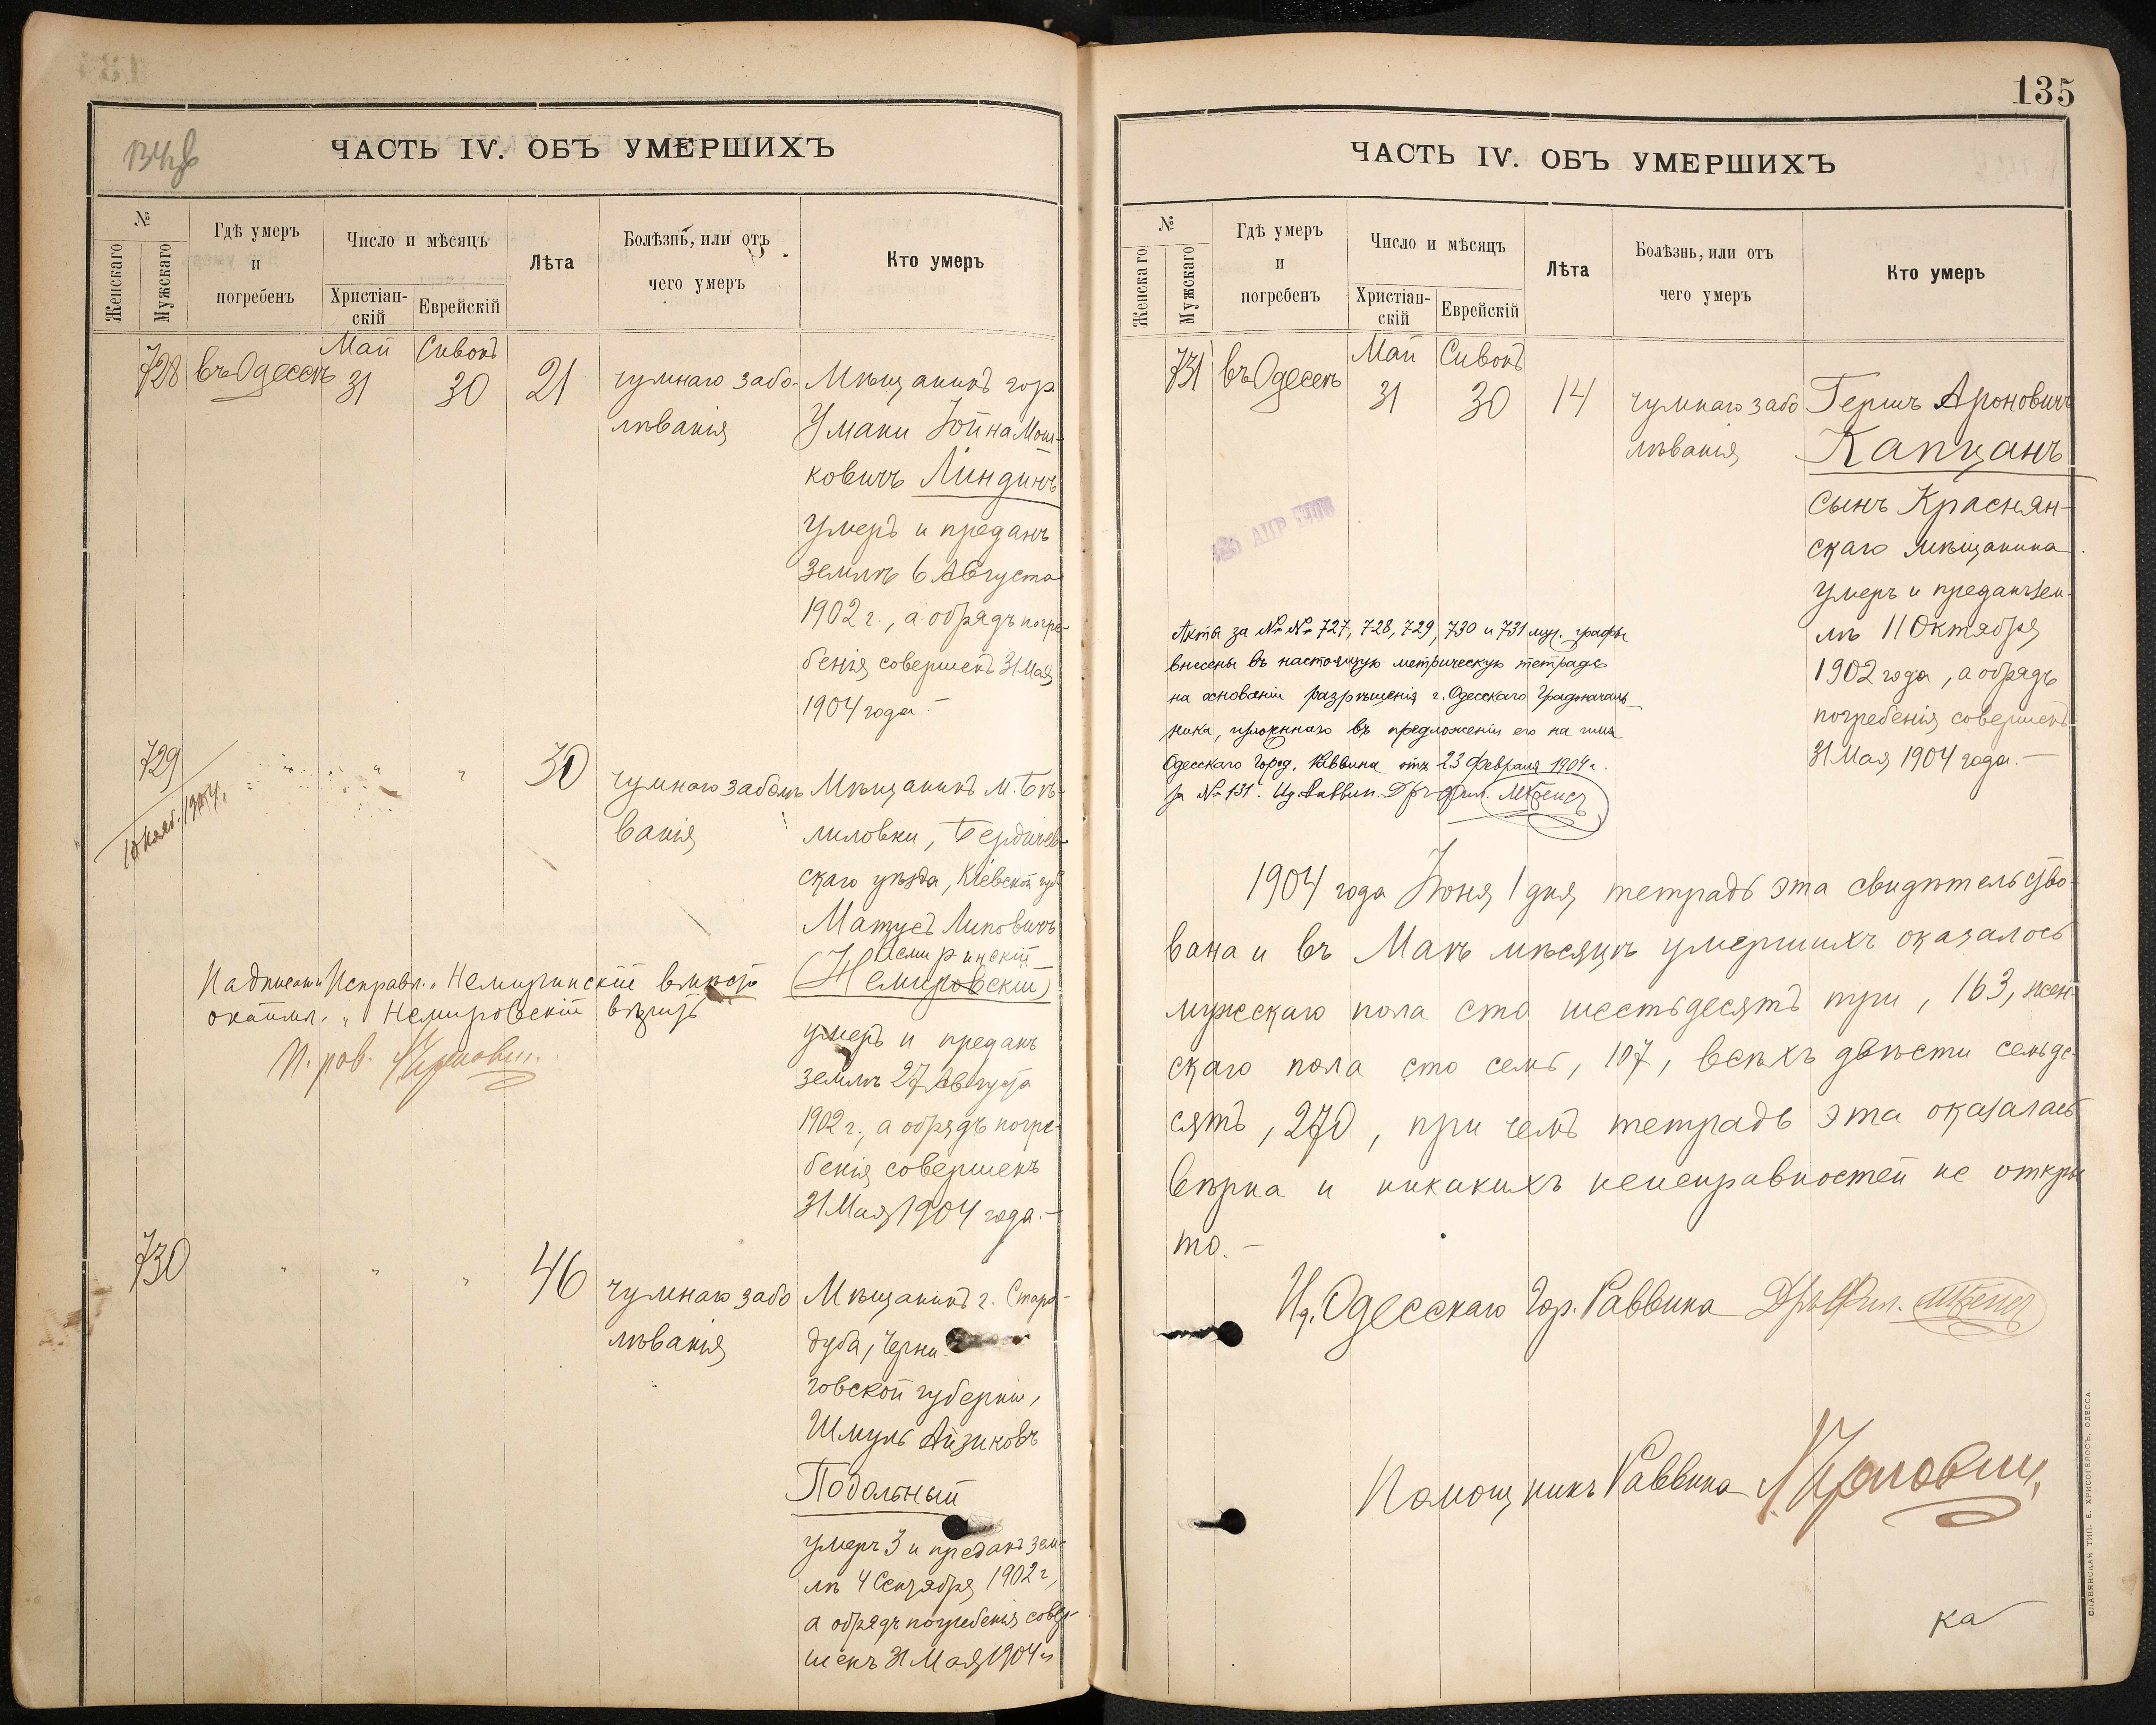 134об
ЧАСТЬ IV. ОБЪ УМЕРШИХЪ
№
Женскаго
Мужскаго
Гдѣ умеръ
и
погребенъ
Число и мѣсяцъ
Христіан-
скій
Еврейскій
Лѣта
Болѣзнь, или отъ
чего умеръ
Кто умеръ
Май Сивонъ
728 въ Одессѣ 31 30 21
чумнаго забо-
лѣванія
Мѣщанинъ гор.
Умани Іойна Мош-
ковичъ Линдинъ
умеръ и преданъ
землѣ 6 Августа
1902 г., а обрядъ погре-
бенія совершенъ 31 Мая
1904 года.-
729 " " " 30
10 нояб. 1904.
чумнаго заболѣ
ванія
Мѣщанинъ м. Бѣ-
лиловки, Бердичев-
скаго уѣзда, Кіевской губ.
Матусъ Липовичъ
(Немировскій)
умеръ и преданъ
землѣ 27 Августа
1902 г., а обрядъ погре-
бенія совершенъ
31 Мая 1904 года.-
Исправл. " вмѣсто
" Немировскій
730 " " " 46
чумнаго забо
лѣванія
Мѣщанинъ г. Старо-
дуба, Черни-
говской губерніи,
Шмуль Айзиковъ
Подольный
умеръ 3 и преданъ зем-
лѣ 4 Сентября 1902 г,
а обрядъ погребенія совер-
шенъ 31 Мая 1904 г.
135
ЧАСТЬ IV. ОБЪ УМЕРШИХЪ
№
Женскаго
Мужскаго
Гдѣ умеръ
и
погребенъ
Число и мѣсяцъ
Христіан-
скій
Еврейскій
Лѣта
Болѣзнь, или отъ
чего умеръ
Кто умеръ
Май Сивонъ
731 въ Одессѣ 31 30 14
чумнаго забо
лѣванія
Гершъ Ароновичъ
Капцанъ
сынъ Краснян-
скаго мѣщанина
умеръ и преданъ зем-
лѣ 11 Октября
1902 года, а обрядъ
погребенія совершенъ
31 Мая 1904 года.-
Акты за №№ 727, 728, 729, 730 и 731 муж. графы
внесены въ настоящую метрическую тетрадь
на основаніи разрѣшенія г. Одесскаго Градоначаль-
ника, изложеннаго въ предложеніи его на имя
Одесскаго Город. Раввина отъ 23 Февраля 1904 г.
за № 131.
1904 года Іюня 1 дня тетрадь эта свидѣтельство-
вана и въ Маѣ мѣсяцѣ умершихъ оказалось
мужескаго пола сто шестьдесятъ три, 163, жен-
скаго пола сто семь, 107, всѣхъ двѣсти семьде-
сятъ, 270, при чемъ тетрадь эта оказалась
вѣрна и никакихъ неисправностей не откры
то.-
И.д. Одесскаго Гор. Раввина
Помощникъ Раввина
ка
СЛАВЯНСКАЯ ТИП. Е. ХРИСОГЕЛОСЪ, ОДЕССА